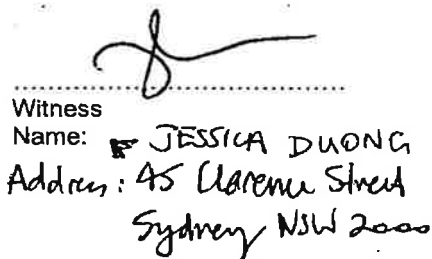 Witness
Name: JESSICA DUONG
Address: 45 Clarence Street
Sydney NSW 2000